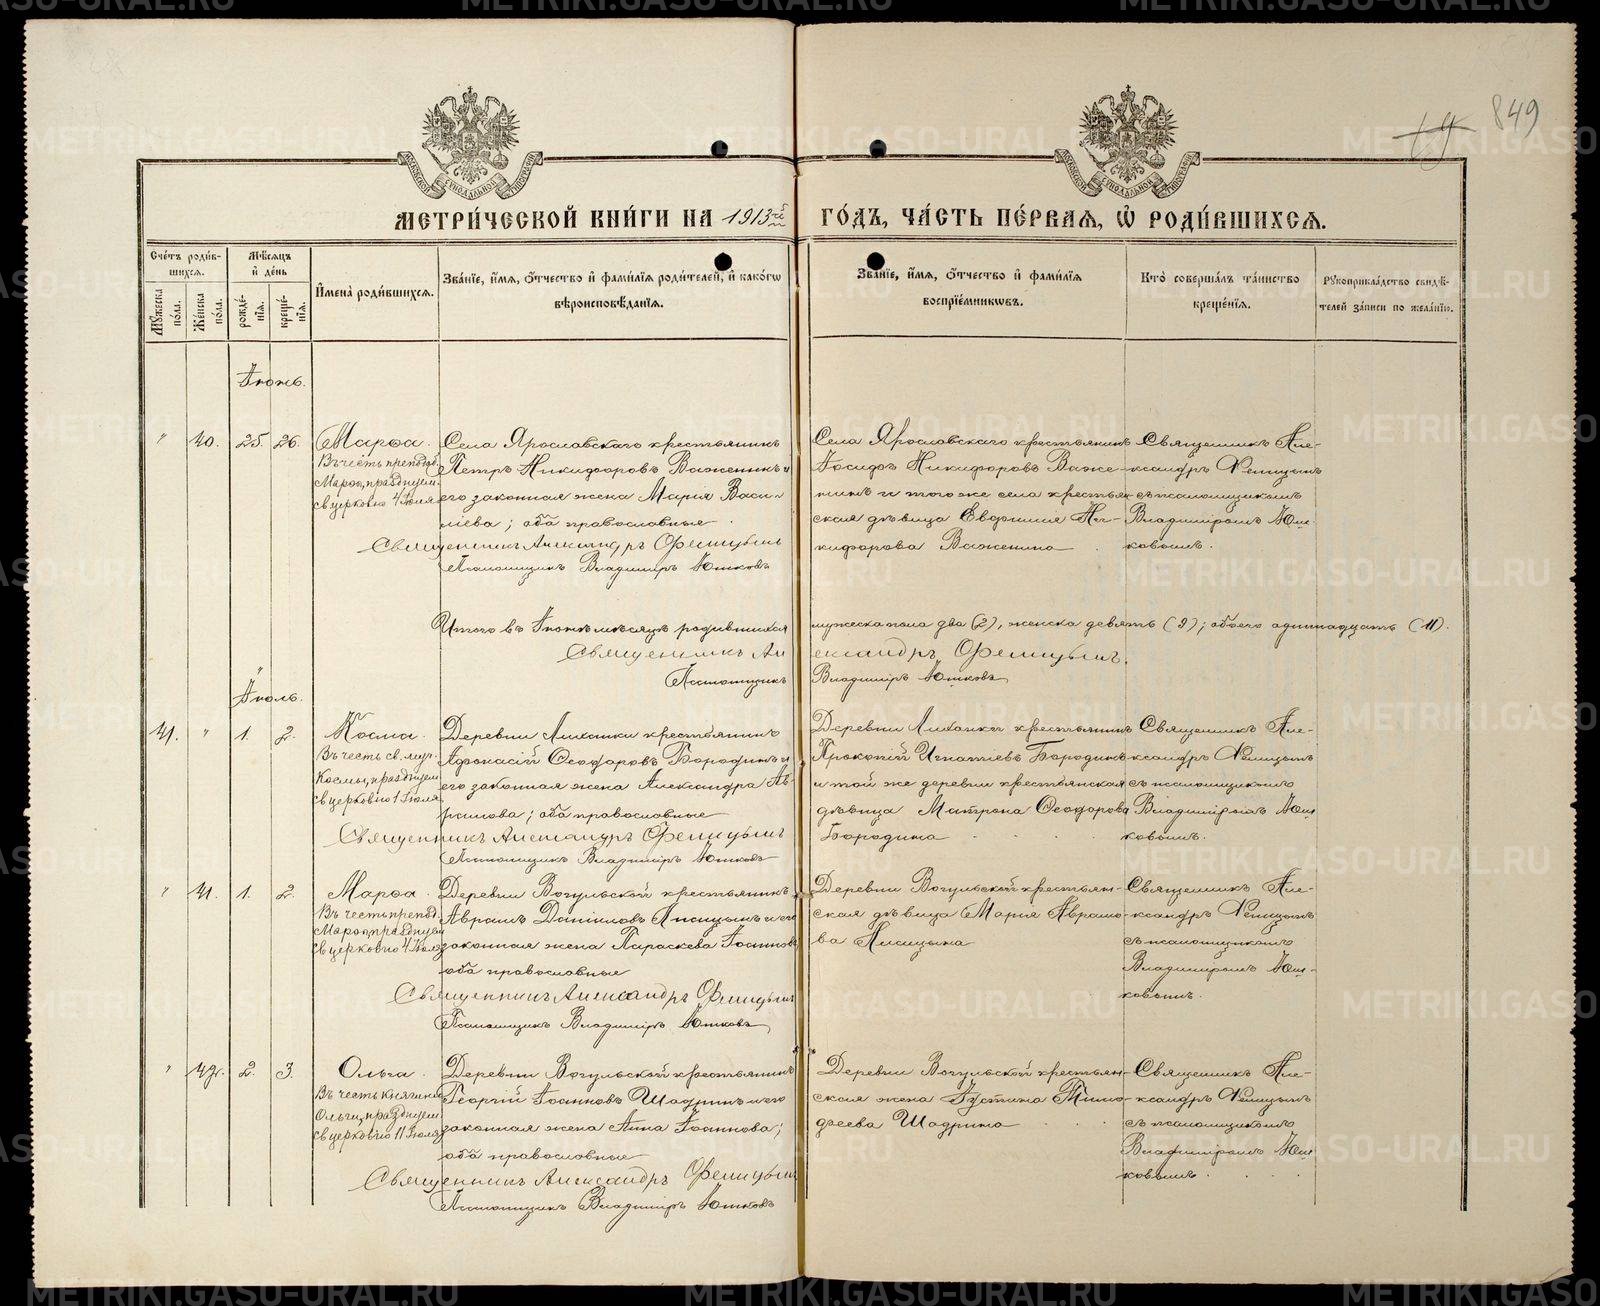 849
19
МОСКОВСКОЙ СѴНОДАЛЬНОЙ ТИПОГРАФІИ
МОСКОВСКОЙ СѴНОДАЛЬНОЙ ТИПОГРАФІИ
МЕТРИ́ЧЕСКОЙ КНИ́ГИ НА 1913й ГО́ДЪ, ЧА́СТЬ ПЕ́РВАЯ, Ѽ РОДИ́ВШИХСЯ.
Сче́тъ роди́вшихся.
Му́жеска по́ла.
Же́нска по́ла.
Мѣ́сяцъ и҆ де́нь
рожде́нїя.
креще́нїя.
И҆мена̀ роди́вшихся.
Зва́нїе, и҆́мя, ѻ҆́тчество и҆ фами́лїя роди́телей, и҆ како́гѡ вѣроисповѣ́данїя.
Зва́нїе, и҆́мя, ѻ҆́тчество и҆ фами́лїя воспрїе́мникѡвъ.
Кто̀ соверша́лъ та́инство креще́нїя.
Рꙋкоприкла́дство свидѣ́телей за́писи по жела́нїю.
Іюнь.
" 40. 25. 26.
Марѳа.
Въ честь препод.
Марѳы, празднуем.
св церковію 4 Іюля
Села Ярославскаго крестьянинъ
Петръ Никифоровъ Важенинъ и
его законная жена Марія Васи-
ліева; оба православные
Священникъ Александръ Ѳеницынъ
Псаломщикъ Владиміръ Юшковъ
Села Ярославскаго крестьянинъ
Іосифъ Никифоровъ Важе-
нинъ и того же села крестьян-
ская дѣвица Евфимія Ни-
кифорова Важенина
Священникъ Але-
ксандръ Ѳеницынъ
съ псаломщикомъ
Владиміромъ Юш-
ковымъ.
Итого въ Іюнѣ мѣсяцѣ родившихся мужеска пола два (2), женска девять (9); обоего одиннадцать (11).
Священникъ Александръ Ѳеницынъ.
Псаломщикъ Владиміръ Юшковъ
Іюль.
41. " 1. 2.
Косма.
Въ честь св. муч.
Космы, празднуем
св церковію 1 Іюля
крестьянинъ
Аѳонасій Ѳеодоровъ Бородинъ и
его законная жена Александра Ав-
рамова; оба православные
Священникъ Александръ Ѳеницынъ
Псаломщикъ Владиміръ Юшковъ
крестьянинъ
Прокопій Игнатіевъ Бородинъ
и той же деревни крестьянская
дѣвица Матрона Ѳеодорова
Бородина
Священникъ Але-
ксандръ Ѳеницынъ
съ псаломщикомъ
Владиміромъ Юш-
ковымъ.
" 41. 1. 2.
Марѳа.
Въ честь препод.
Марѳы, празднуем
св церковію 4 Іюля
Деревни Вогульской крестьянинъ
Аврамъ Даніиловъ Лисицынъ и его
законная жена Параскева Іоаннова
оба православные
Священникъ Александръ Ѳеницынъ
Псаломщикъ Владиміръ Юшковъ
Деревни Вогульской крестьян-
ская дѣвица Марія Аврамо-
ва Лисицына
Священникъ Але-
ксандръ Ѳеницынъ
съ псаломщикомъ
Владиміромъ Юш-
ковымъ.
" 42. 2. 3.
Ольга.
Въ честь Княгини
Ольги, празднуем
св церковію 11 Іюля
Деревни Вогульской крестьянинъ
Георгій Іоанновъ Шадринъ и его
законная жена Анна Іоаннова;
оба православные
Священникъ Александръ Ѳеницынъ
Псаломщикъ Владиміръ Юшковъ
Деревни Вогульской крестьян-
ская жена Іустина Тимо-
ѳеева Шадрина
Священникъ Але-
ксандръ Ѳеницынъ
съ псаломщикомъ
Владиміромъ Юш-
ковымъ.
METRIKI.GASO-URAL.RU